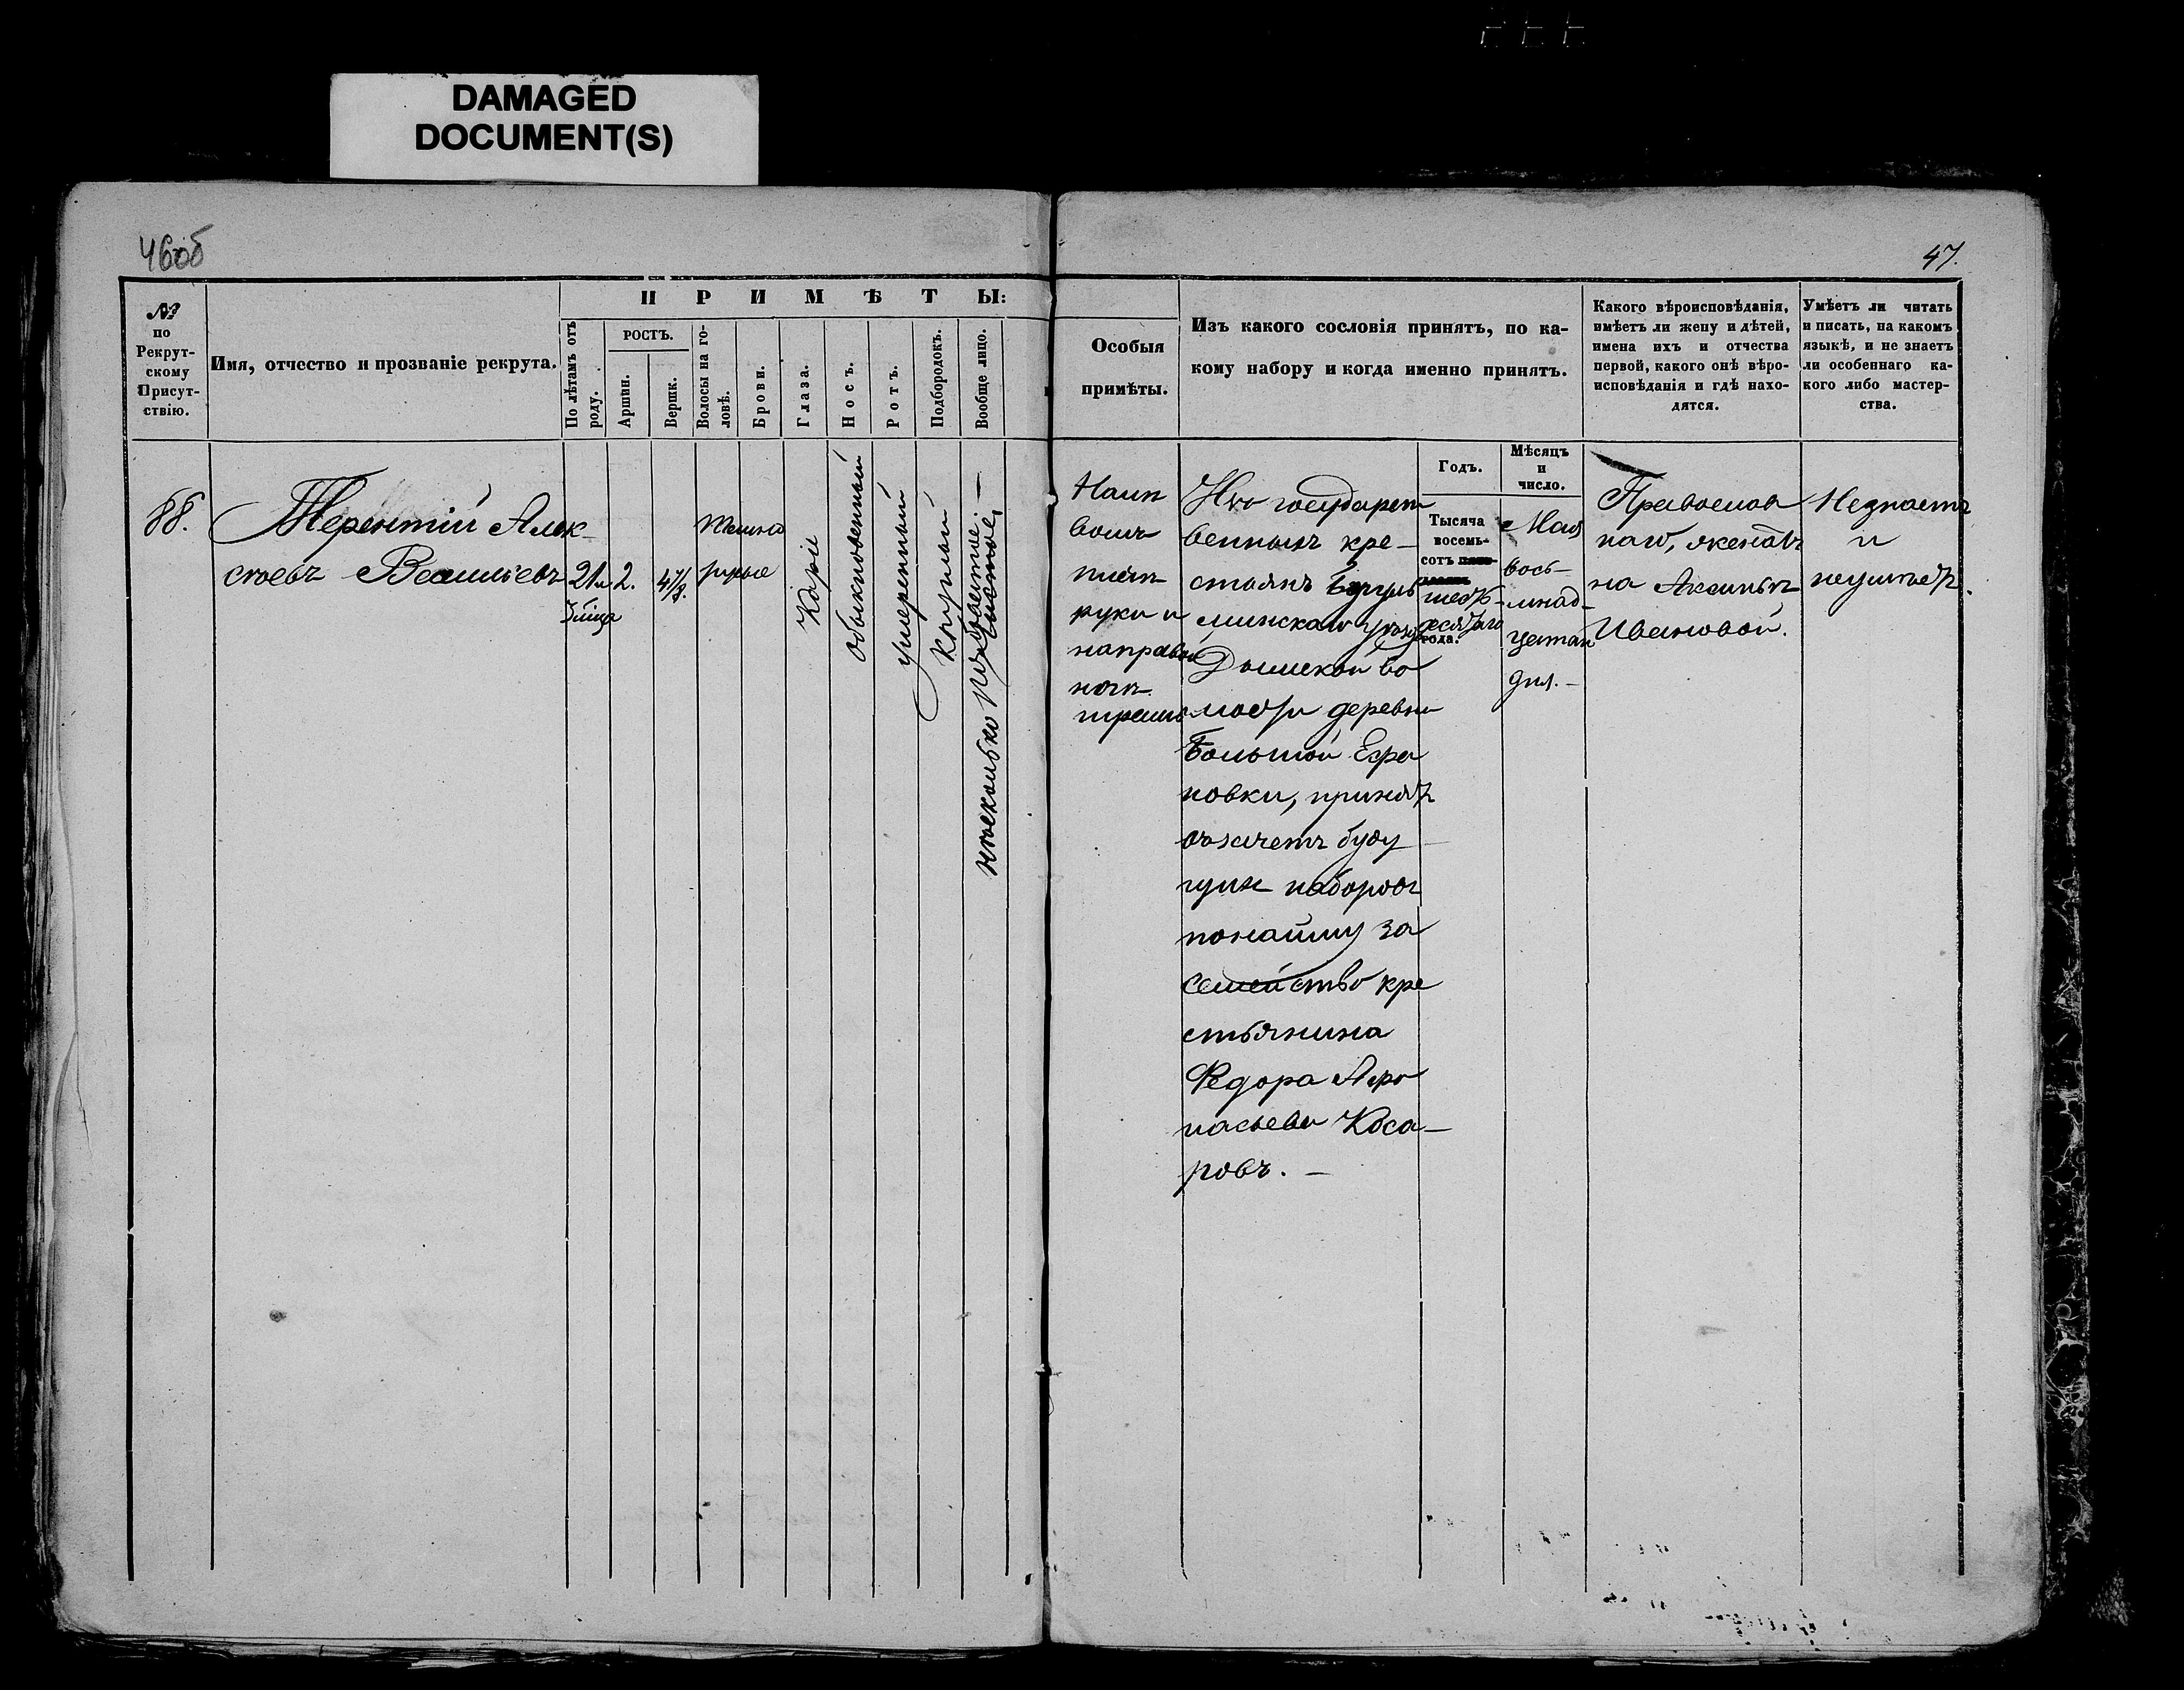 DAMAGED
DOCUMENT(S)
46об
47.
П Р И М Ѣ Т Ы:
№
по
Рекрут-
скому
Присут-
ствію.
Имя, отчество и прозваніе рекрута.
По лѣтамъ отъ
роду.
РОСТЪ.
Аршин.
Вершк.
Волосы на го-
ловѣ.
Брови.
Глаза.
Носъ.
Ротъ.
Подбородокъ.
Вообще лицо.
Особыя
примѣты.
Изъ какого сословія принятъ, по ка-
кому набору и когда именно принятъ.
Какого вѣроисповѣданія,
имѣетъ ли жену и дѣтей,
имена ихъ и отчества
первой, какого онѣ вѣро-
исповѣданія и гдѣ нахо-
дятся.
Умѣетъ ли читать
и писать, на какомъ
языкѣ, и не знаетъ
ли особеннаго ка-
кого либо мастер-
ства.
88.
Терентій Алек-
сѣевъ Васильевъ
21 и
2.
4 1/8.
темно
русые
Каріе
обыкновенный
умеренный
круглый
нѣсколько рябоватое.—
чистое,
На
вомъ
руки и
на правой
ногѣ
Изъ государст
венныхъ кре-
стьянъ Бугуль
минскаго уѣзда
во
лости деревни
Большой Ефа
новки, принятъ
въ зачетъ буду
щихъ наборовъ
по найму за
семейство кре
стьянина
Федора Афо
насьева Коса-
ровъ. —
Годъ.
Тысяча
восемь-
сотъ
шестъ-
десятаго
года.
Мѣсяцъ
и
число.
Мая
вось-
мнад-
цатаго
дня. —
Православ
наго, женатъ
на Аксиньѣ
Ивановой.
Незнаетъ
и
неумѣетъ.